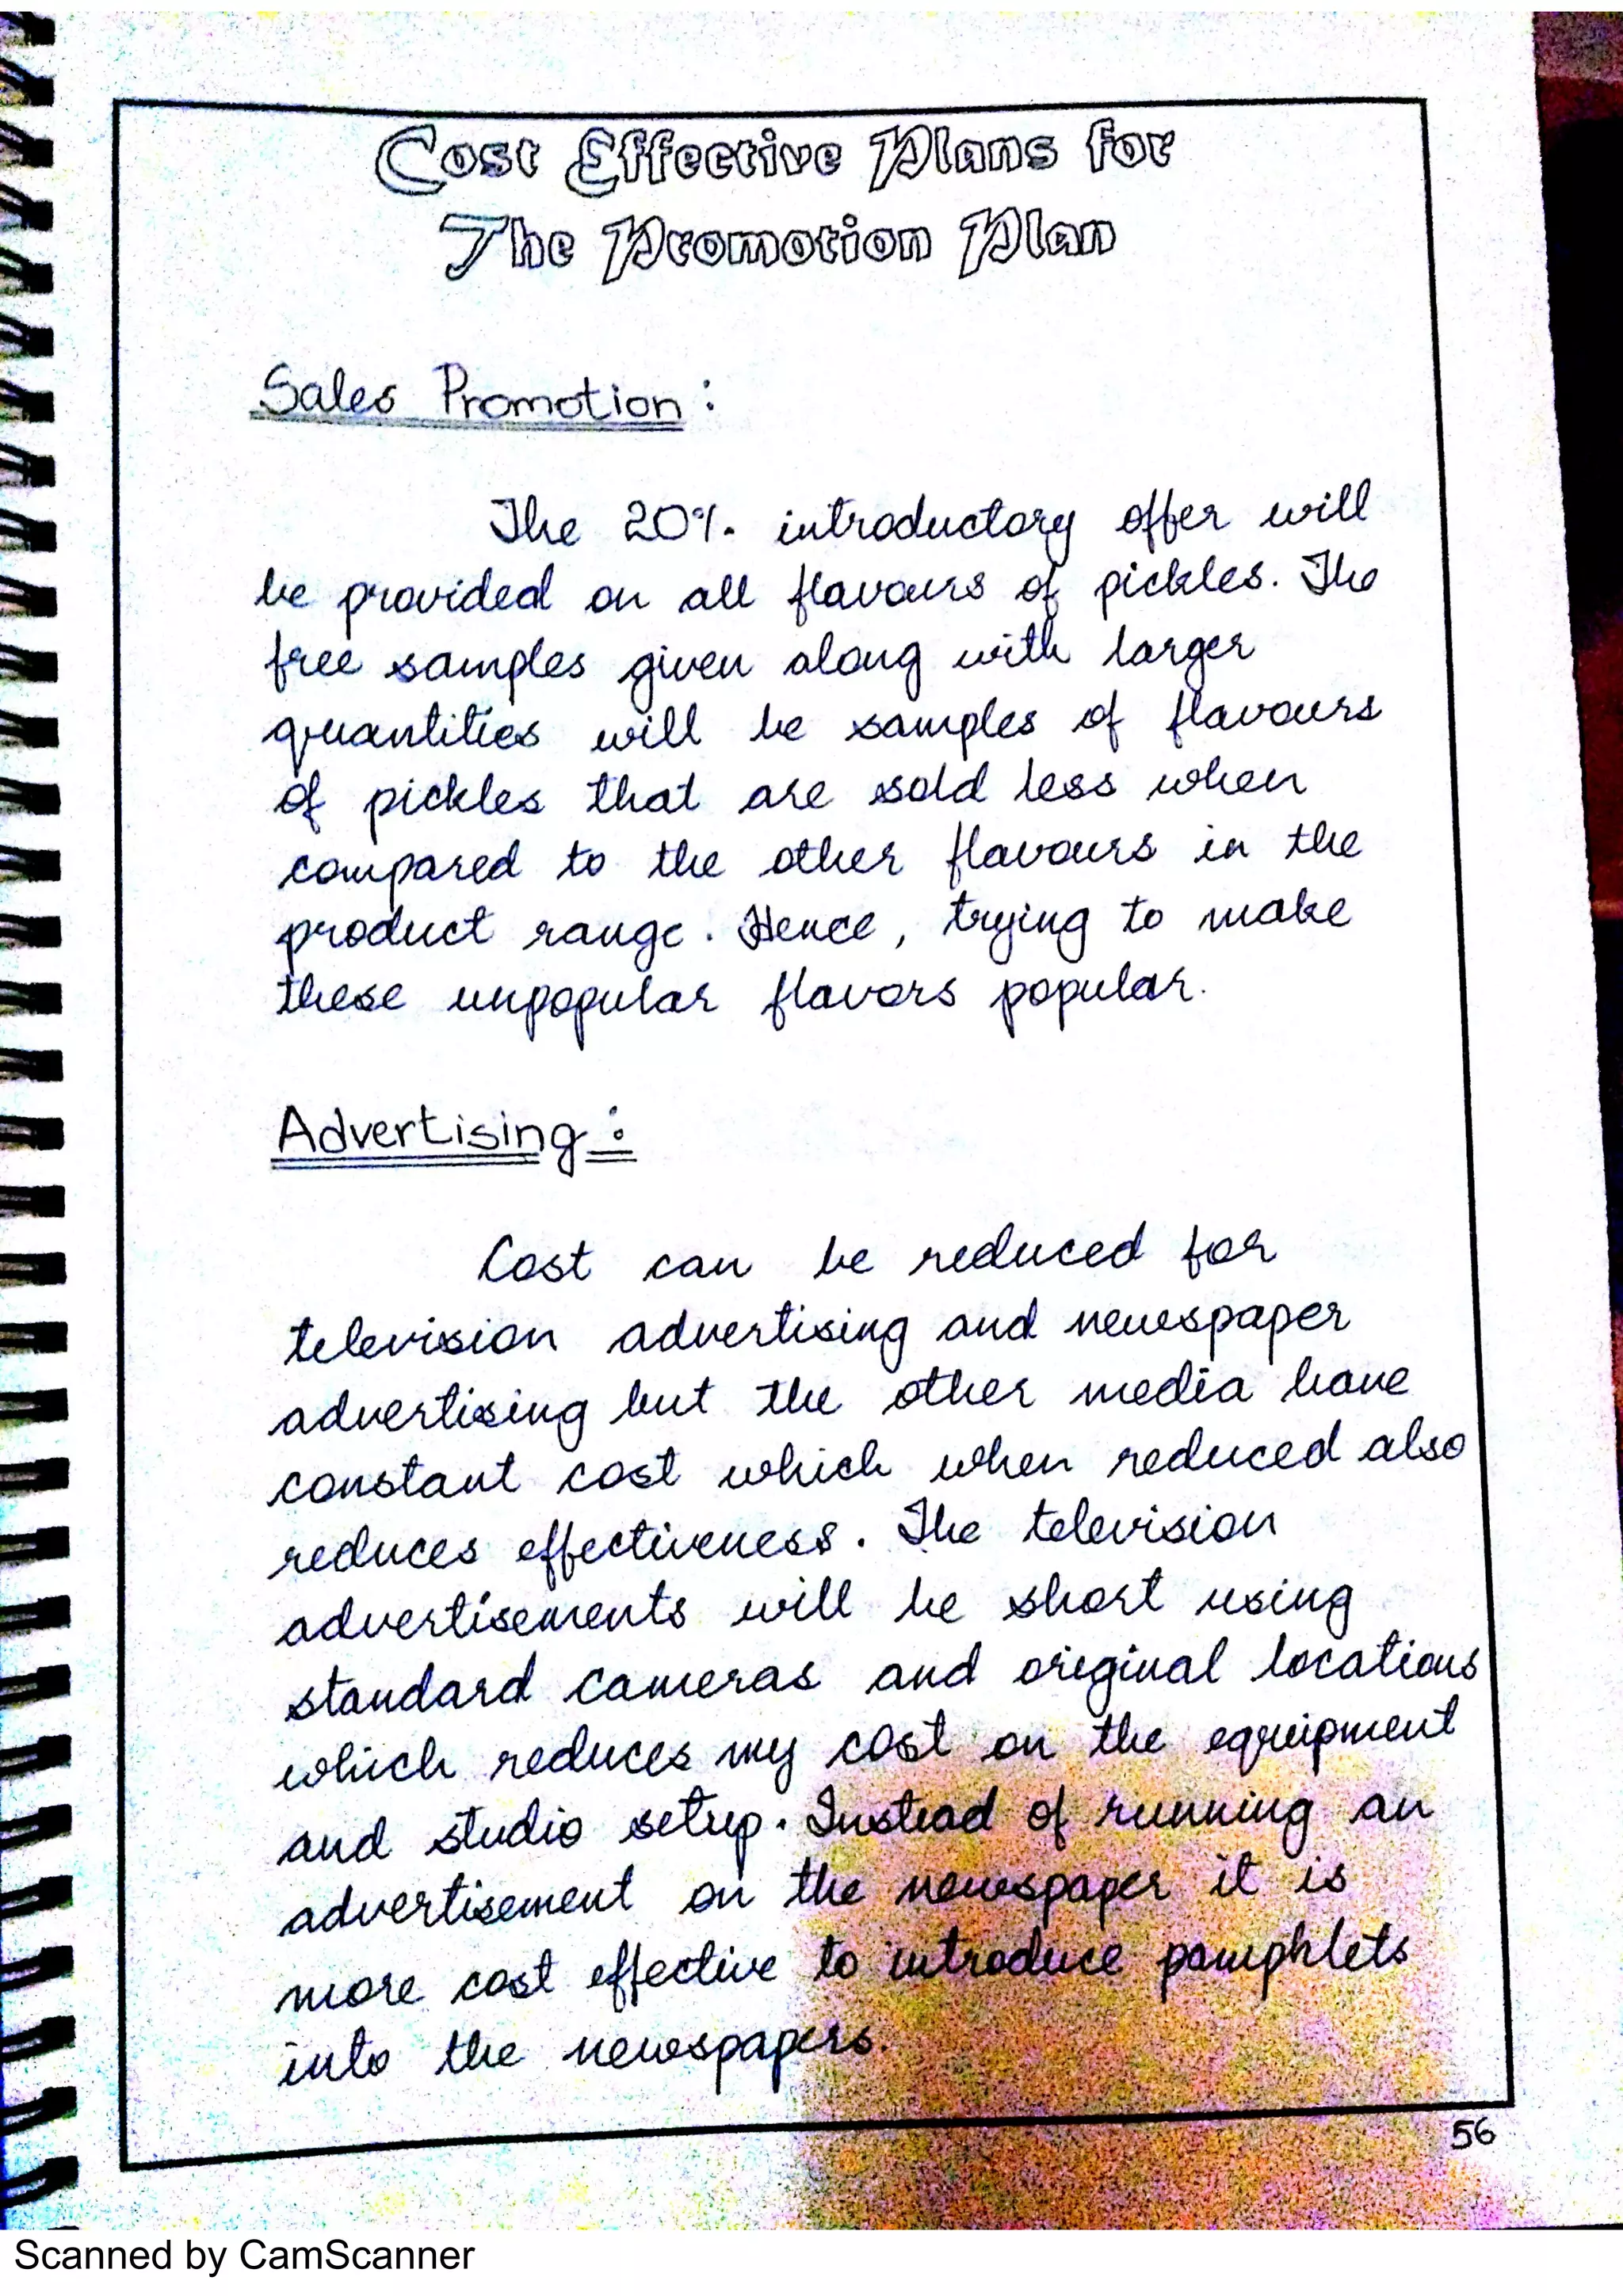 Cost Effective Plans for
The Promotion Plan
Sales Promotion :
The 20% introductory offer will
be provided on all flavours of pickles. The
free samples given along with larger
quantities will be samples of flavours
of pickles that are sold less when
compared to the other flavours in the
product range. Hence, trying to make
these unpopular flavors popular.
Advertising :
Cost can be reduced for
television advertising and newspaper
advertising but the other media have
constant cost which when reduced also
reduces effectiveness. The television
advertisements will be short using
standard cameras and original locations
which reduces my cost on the equipment
and studio setup. Instead of running an
advertisement on the newspaper it is
more cost effective to introduce pamphlets
into the newspapers.
56
Scanned by CamScanner